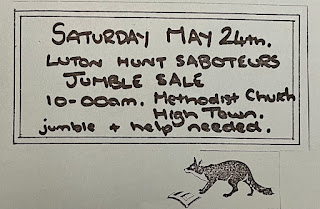 SATURDAY MAY 24th.
LUTON HUNT SABOTEURS
JUMBLE SALE
10-00am. Methodist Church
High Town.
jumble + help needed.